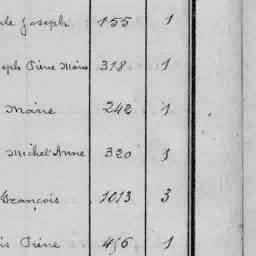 Joseph 155 1
Pierre Marie 318 1
Marie 242 1
Michel Anne 320 1
François 1013 3
Pierre 456 1